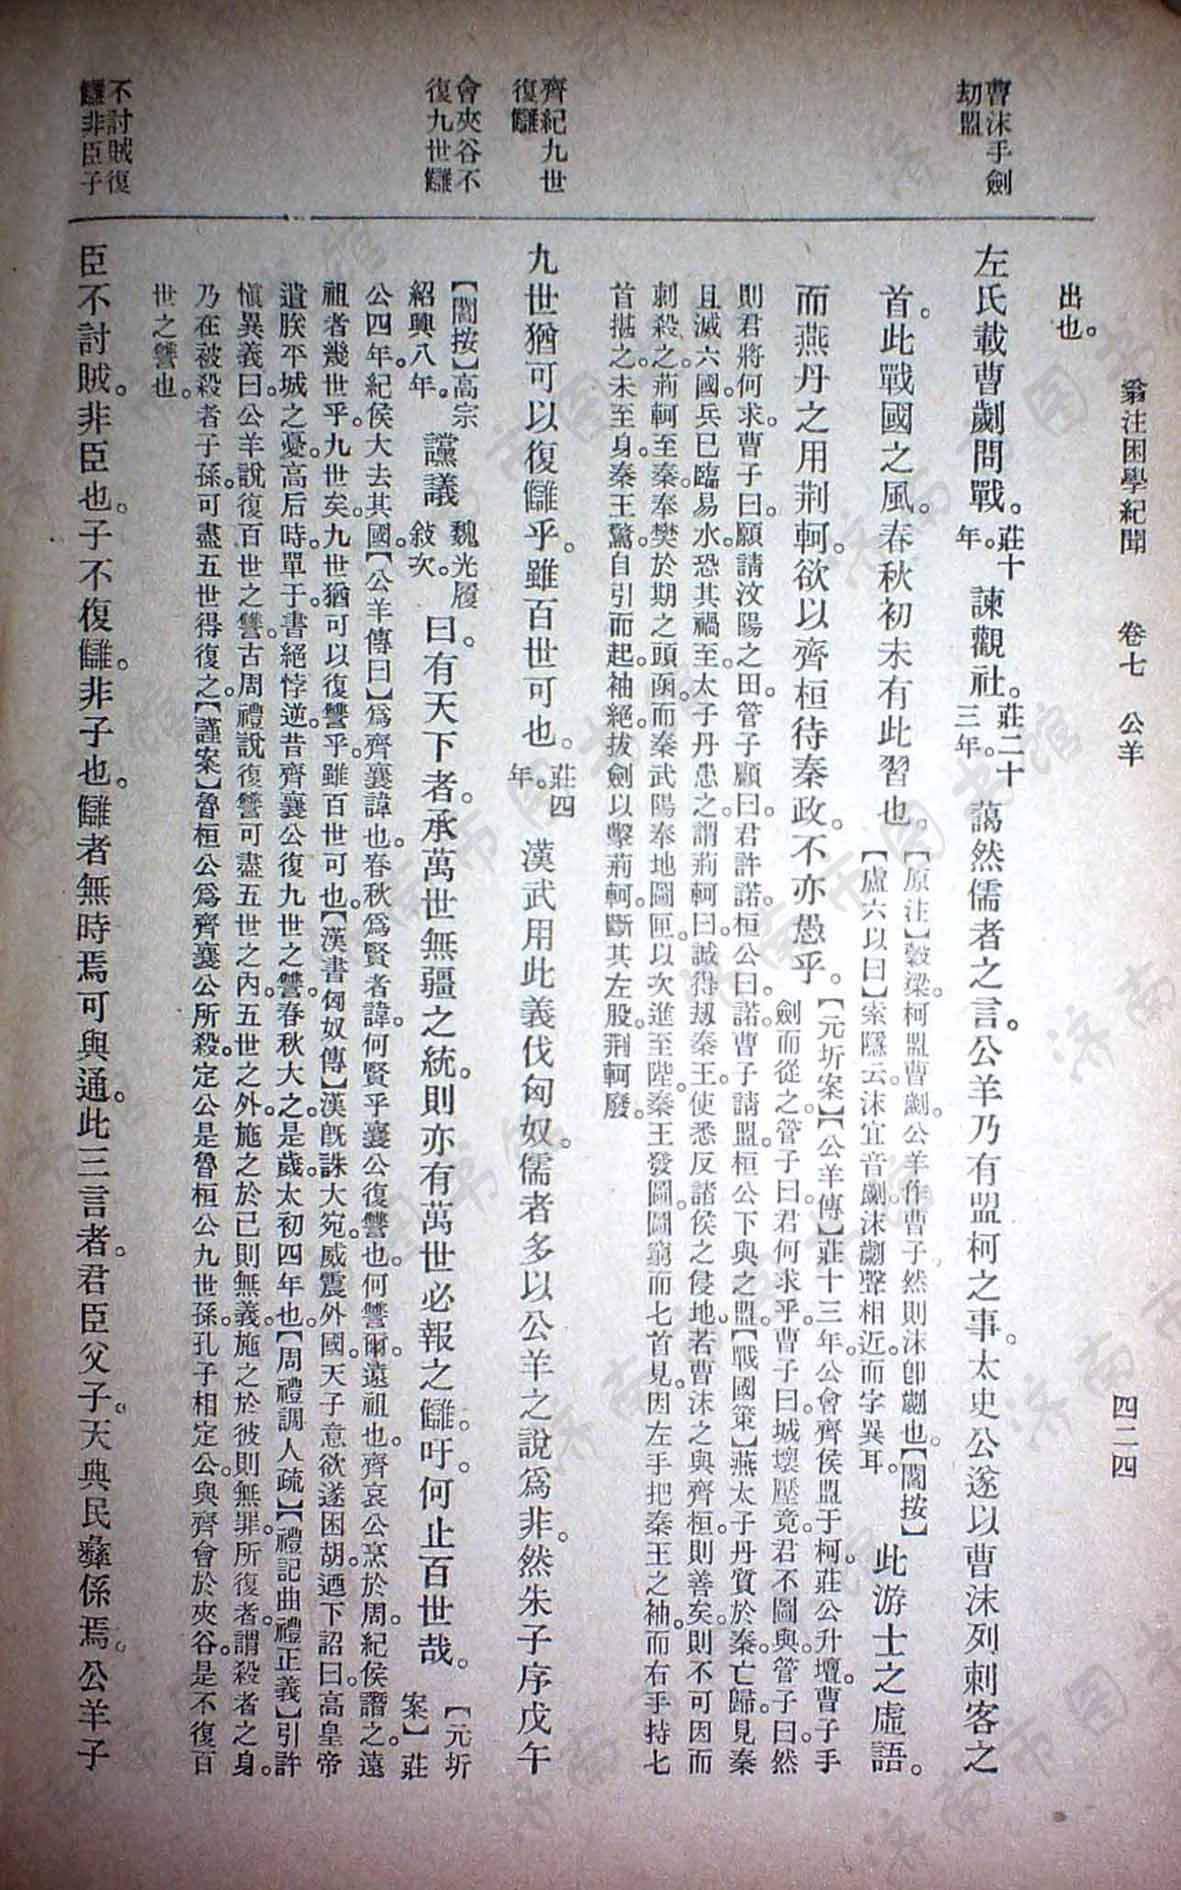 翁注困學紀聞　卷七　公羊　四二四
曹沫手劍
劫盟
齊紀九世
復讎
會夾谷不
復九世讎
不討賊復
讎非臣子
出也。
左氏載曹劌問戰。
莊十
年。
諫觀社。
莊二十
三年。
藹然儒者之言。公羊乃有盟柯之事。太史公遂以曹沫列刺客之
首。此戰國之風。春秋初未有此習也。
【原注】穀梁。柯盟曹劌。公羊作曹子。然則沫卽劌也。【閻按】
【盧六以曰】索隱云。沫宜音劌。沫劌聲相近。而字異耳。
此游士之虛語。
而燕丹之用荆軻。欲以齊桓待秦政。不亦愚乎。
【元圻案】【公羊傳】莊十三年。公會齊侯盟于柯。莊公升壇。曹子手
劍而從之。管子曰。君何求乎。曹子曰。城壞壓竟。君不圖與。管子曰。然
則君將何求。曹子曰。願請汶陽之田。管子顧曰。君許諾。桓公曰。諾。曹子請盟。桓公下與之盟。【戰國策】燕太子丹質於秦。亡歸。見秦
且滅六國。兵已臨易水。恐其禍至。太子丹患之。謂荊軻曰。誠得刼秦王。使悉反諸侯之侵地。若曹沫之與齊桓。則善矣。則不可。因而
刺殺之。荊軻至秦。奉樊於期之頭函。而秦武陽奉地圖匣。以次進至陛。秦王發圖。圖窮而七首見。因左手把秦王之袖。而右手持七
首揕之。未至身。秦王驚。自引而起。袖絕。拔劍以擊荊軻。斷其左股。荆軻廢。
九世猶可以復讎乎。雖百世可也。
莊四
年。
漢武用此義伐匈奴。儒者多以公羊之說爲非。然朱子序戊午
【閻按】高宗
紹興八年。
讜議
魏光履
敍次。
曰。有天下者。承萬世無疆之統。則亦有萬世必報之讎。吁。何止百世哉。
【元圻
案】莊
公四年。紀侯大去其國。【公羊傳曰】爲齊襄諱也。春秋爲賢者諱。何賢乎襄公。復讐也。何讐爾。遠祖也。齊哀公烹於周。紀侯譖之。遠
祖者幾世乎。九世矣。九世猶可以復讐乎。雖百世可也。【漢書匈奴傳】漢旣誅大宛。威震外國。天子意欲遂困胡。迺下詔曰。高皇帝
遺朕平城之憂。高后時。單于書絕悖逆。昔齊襄公復九世之讐。春秋大之。是歲太初四年也。【周禮調人疏】【禮記曲禮正義】引許
愼異義曰。公羊說復百世之讐。古周禮說復讐可盡五世之內。五世之外。施之於已則無義。施之於彼則無罪。所復者。謂殺者之身。
乃在被殺者子孫。可盡五世得復之。【謹案】魯桓公爲齊襄公所殺。定公是魯桓公九世孫。孔子相定公。與齊會於夾谷。是不復百
世之讐也。
臣不討賊。非臣也。子不復讎。非子也。讎者無時焉可與通。此三言者。君臣父子。天典民彝係焉。公羊子